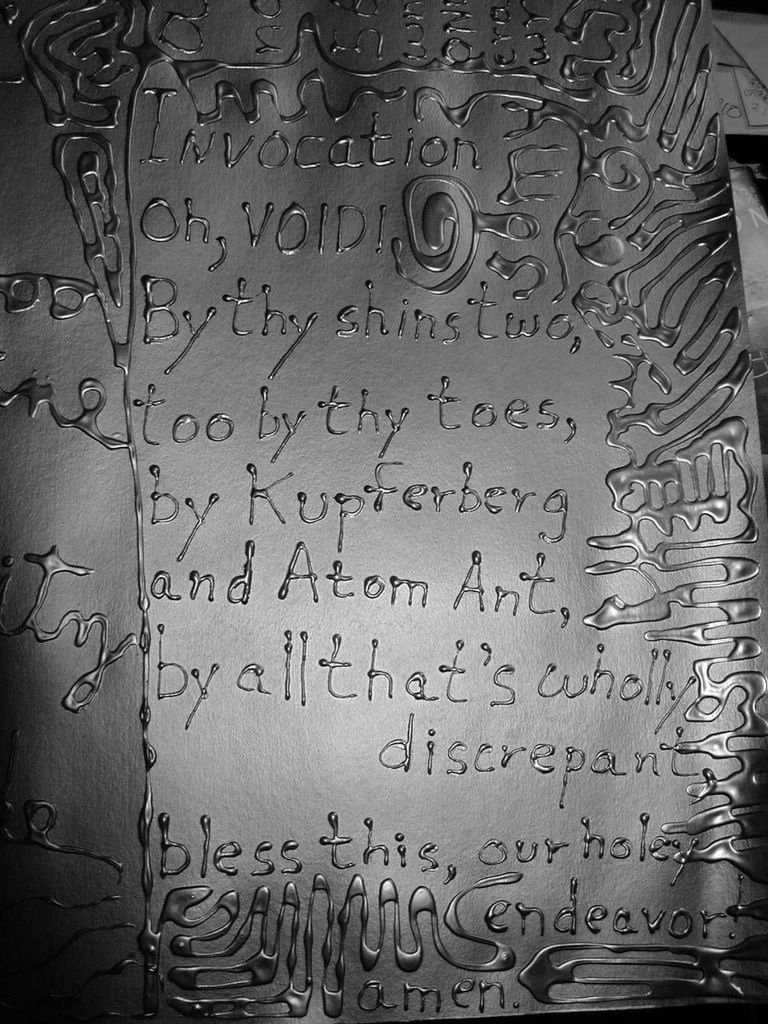 Invocation
Oh, VOID!
By thy shins two,
too by thy toes,
by Kupferberg
and Atom Ant,
by all that's wholly
discrepant,
bless this, our holey
endeavor!
amen.